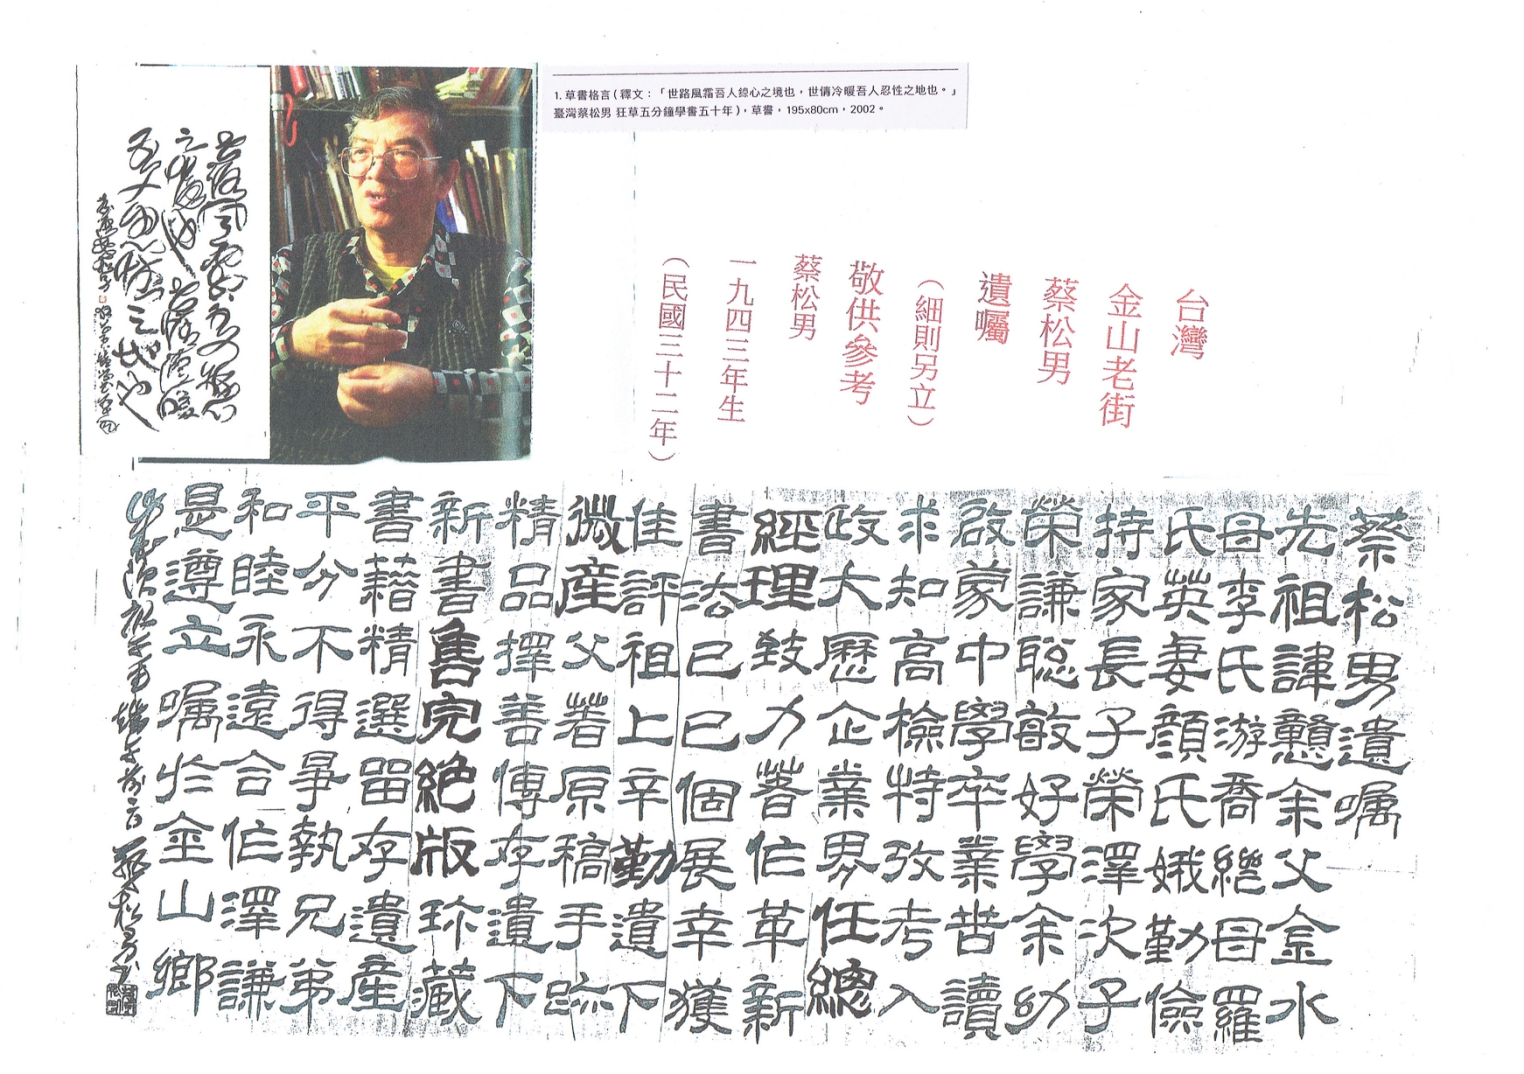 世路風霜吾人鍊心
之境也世情冷暖
吾人忍性之地也
1. 草書格言(釋文:「世路風霜吾人鍊心之境也,世情冷暖吾人忍性之地也。」
臺灣蔡松男 狂草五分鐘學書五十年),草書,195x80cm,2002。
台灣
金山老街
蔡松男
遺囑
(細則另立)
敬供參考
蔡松男
一九四三年生
(民國三十二年)
蔡松男遺囑
先祖諱戇余父金水
母李氏游喬繼母羅
氏英妻顏氏娥勤儉
持家長子榮澤次子
榮謙聰敏好學余幼
啟蒙中學卒業苦讀
求知高檢特攷考入
政大歷企業界任總
經理致力著作革新
書法已已個展幸獲
佳評祖上辛勤遺下
微產父著原稿手跡
精品擇善傳存遺下
新書售完絕版珍藏
書籍精選留存遺產
平分不得爭執兄弟
和睦永遠合作澤謙
是遵立囑於金山鄉